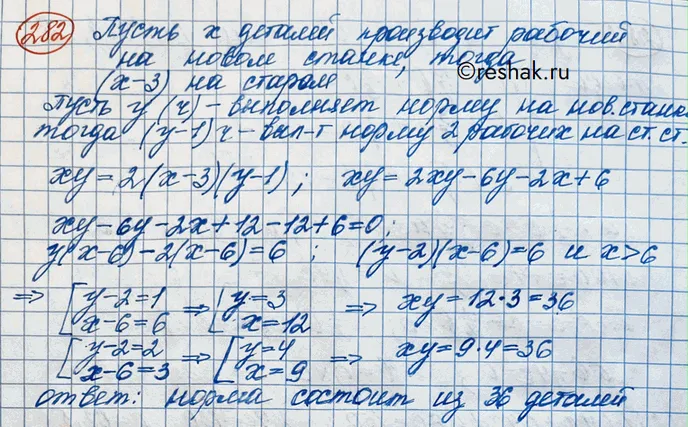 282 Пусть x деталей производит рабочий
на новом станке, тогда
©reshak.ru
(x-3) на старом
Пусть y (ч) - выполняет норму на нов. станке
тогда (y-1) ч - вып-т норму 2 рабочих на ст. ст.
xy = 2(x-3)(y-1); xy = 2xy-6y-2x+6
xy-6y-2x+12-12+6=0;
y(x-6)-2(x-6)=6 ; (y-2)(x-6)=6 и x>6
=> [ y-2=1 => [ y=3 => xy=12·3=36
x-6=6 x=12
[ y-2=2 => [ y=4 => xy=9·4=36
x-6=3 x=9
ответ: норма состоит из 36 деталей